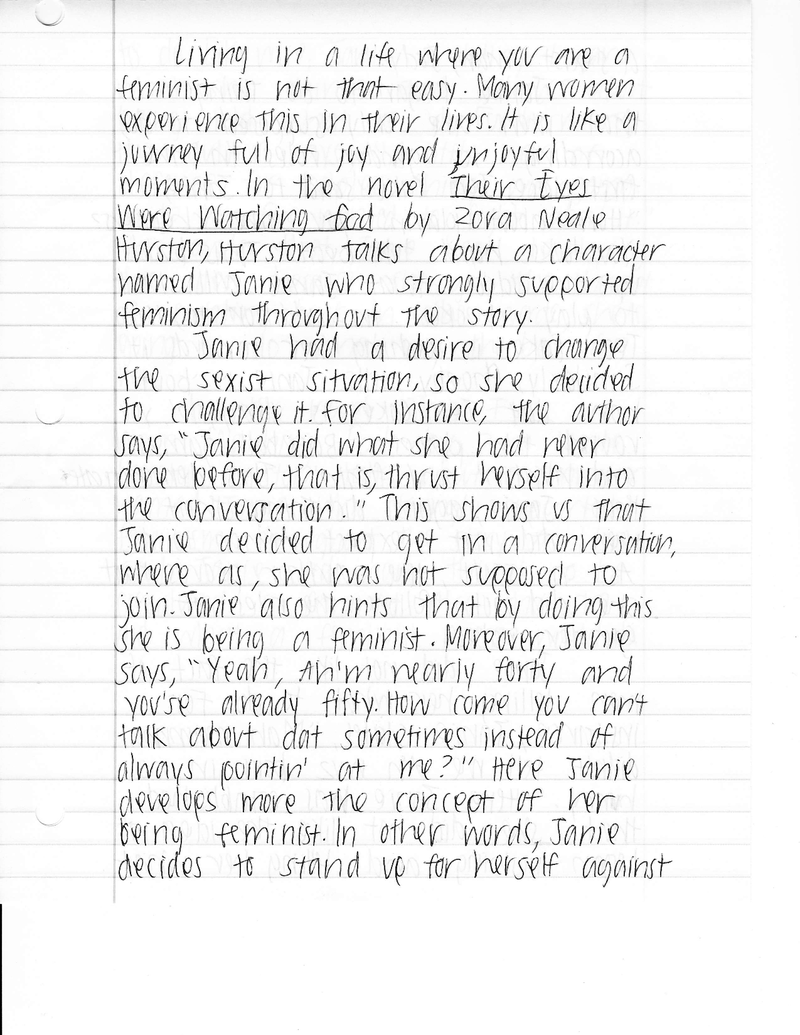 Living in a life where you are a
feminist is not that easy. Many women
experience this in their lives. It is like a
journey full of joy and unjoyful
moments. In the novel Their Eyes
Were Watching God by Zora Neale
Hurston, Hurston talks about a character
named Janie who strongly supported
feminism throughout the story.
Janie had a desire to change
the sexist situation, so she decided
to challenge it. For instance, the author
says, "Janie did what she had never
done before, that is, thrust herself into
the conversation." This shows us that
Janie decided to get in a conversation,
where as, she was not supposed to
join. Janie also hints that by doing this
she is being a feminist. Moreover, Janie
says, "Yeah, Ah'm nearly forty and
you'se already fifty. How come you can't
talk about dat sometimes instead of
always pointin' at me?" Here Janie
develops more the concept of her
being feminist. In other words, Janie
decides to stand up for herself against